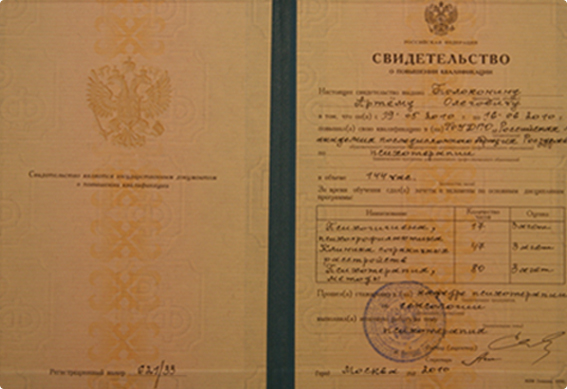 Свидетельство является государственным документом
о повышении квалификации
Регистрационный номер 621/33
РОССИЙСКАЯ ФЕДЕРАЦИЯ
СВИДЕТЕЛЬСТВО
О ПОВЫШЕНИИ КВАЛИФИКАЦИИ
Настоящее свидетельство выдано Белоконину
Артёму Олеговичу
в том, что он(а) с 19.05.2010 по 16.06.2010г.
повысил(а) свою квалификацию в (на) ГОУ ДПО, Российская
академия последипломного
по психотерапии
в объёме 144 час.
За время обучения сдал(а) зачеты и экзамены по основным дисциплинам
программы:
Наименование Количество часов Оценка
Психогигиена, психопрофилактика 17 Зачет
Клиника пограничных расстройств 47 Зачет
Психотерапия, методы 80 Зачет
Прошел(а) стажировку в (на) кафедре психотерапии
и сексологии
выполнил(а) итоговую работу на тему
психотерапия
Секретарь
Город Москва 2010